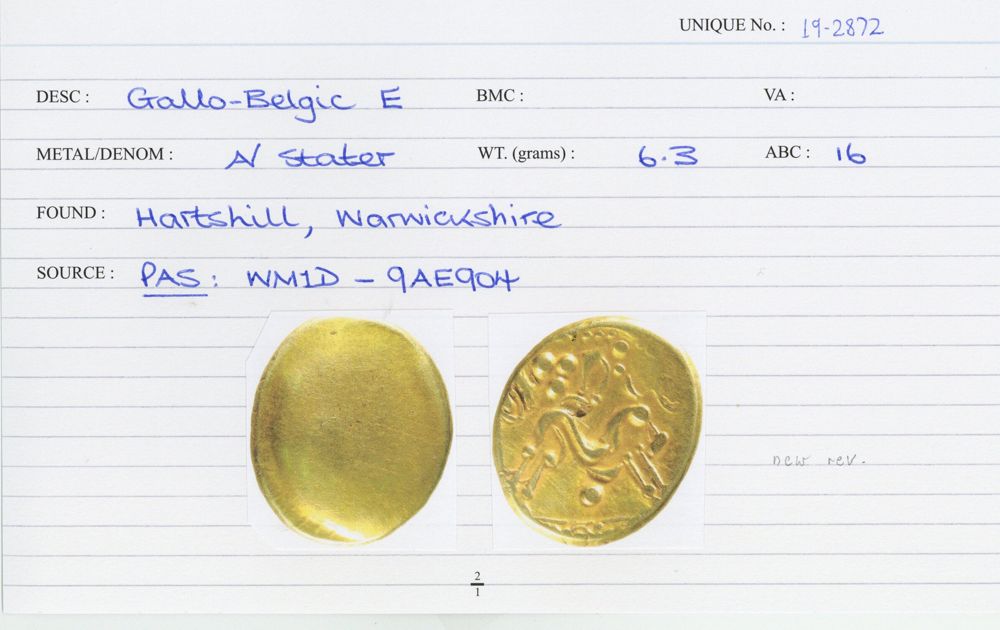 UNIQUE No. : 19-2872
DESC : Gallo-Belgic E BMC : VA :
METAL/DENOM : A/ Stater WT. (grams) : 6.3 ABC : 16
FOUND : Hartshill, Warwickshire
SOURCE : PAS: WM1D - 9AE904
new rev.
2
1